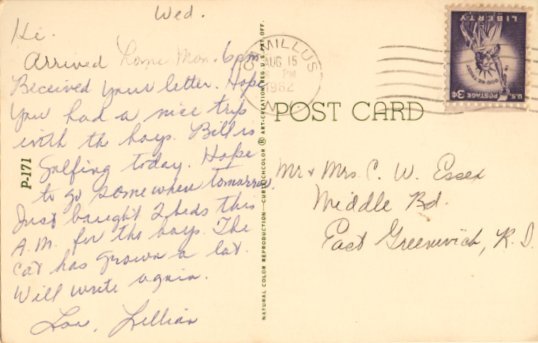 Wed.
Hi.
Arrived home Mon. 6pm
Received your letter. Hope
you had a nice trip
with the boys. Bill is
golfing today. Hope
to go somewhere tomorrow.
Just bought 2 beds this
A.M. for the boys. The
cat has grown a lot.
Will write again.
Love, Lillian
P-171
NATURAL COLOR REPRODUCTION—CURTEICHCOLOR ® ART-CREATION REG. U.S. PAT. OFF.
CAMILLUS
AUG 15
PM
1962
N.Y.
LIBERTY
U.S. POSTAGE 3¢
POST CARD
Mr + Mrs C. W. Essex
Middle Rd.
East Greenwich, R.I.